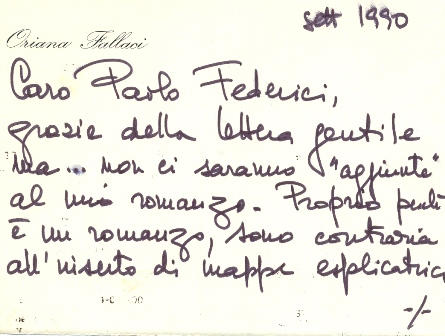 sett 1990
Oriana Fallaci
Caro Paolo Federici,
grazie della lettera gentile
ma... non ci saranno "aggiunte"
al mio romanzo. Proprio perché
è un romanzo, sono contraria
all'inserto di mappe esplicatrici
-/-